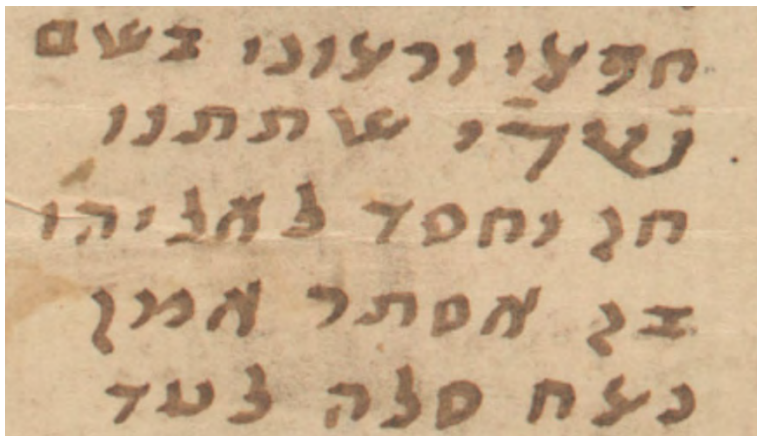 חפצי ורצוני בשם
שדי שתתנו
חן וחסד לאליהו
בן אסתר אמן
נצח סלה לעד